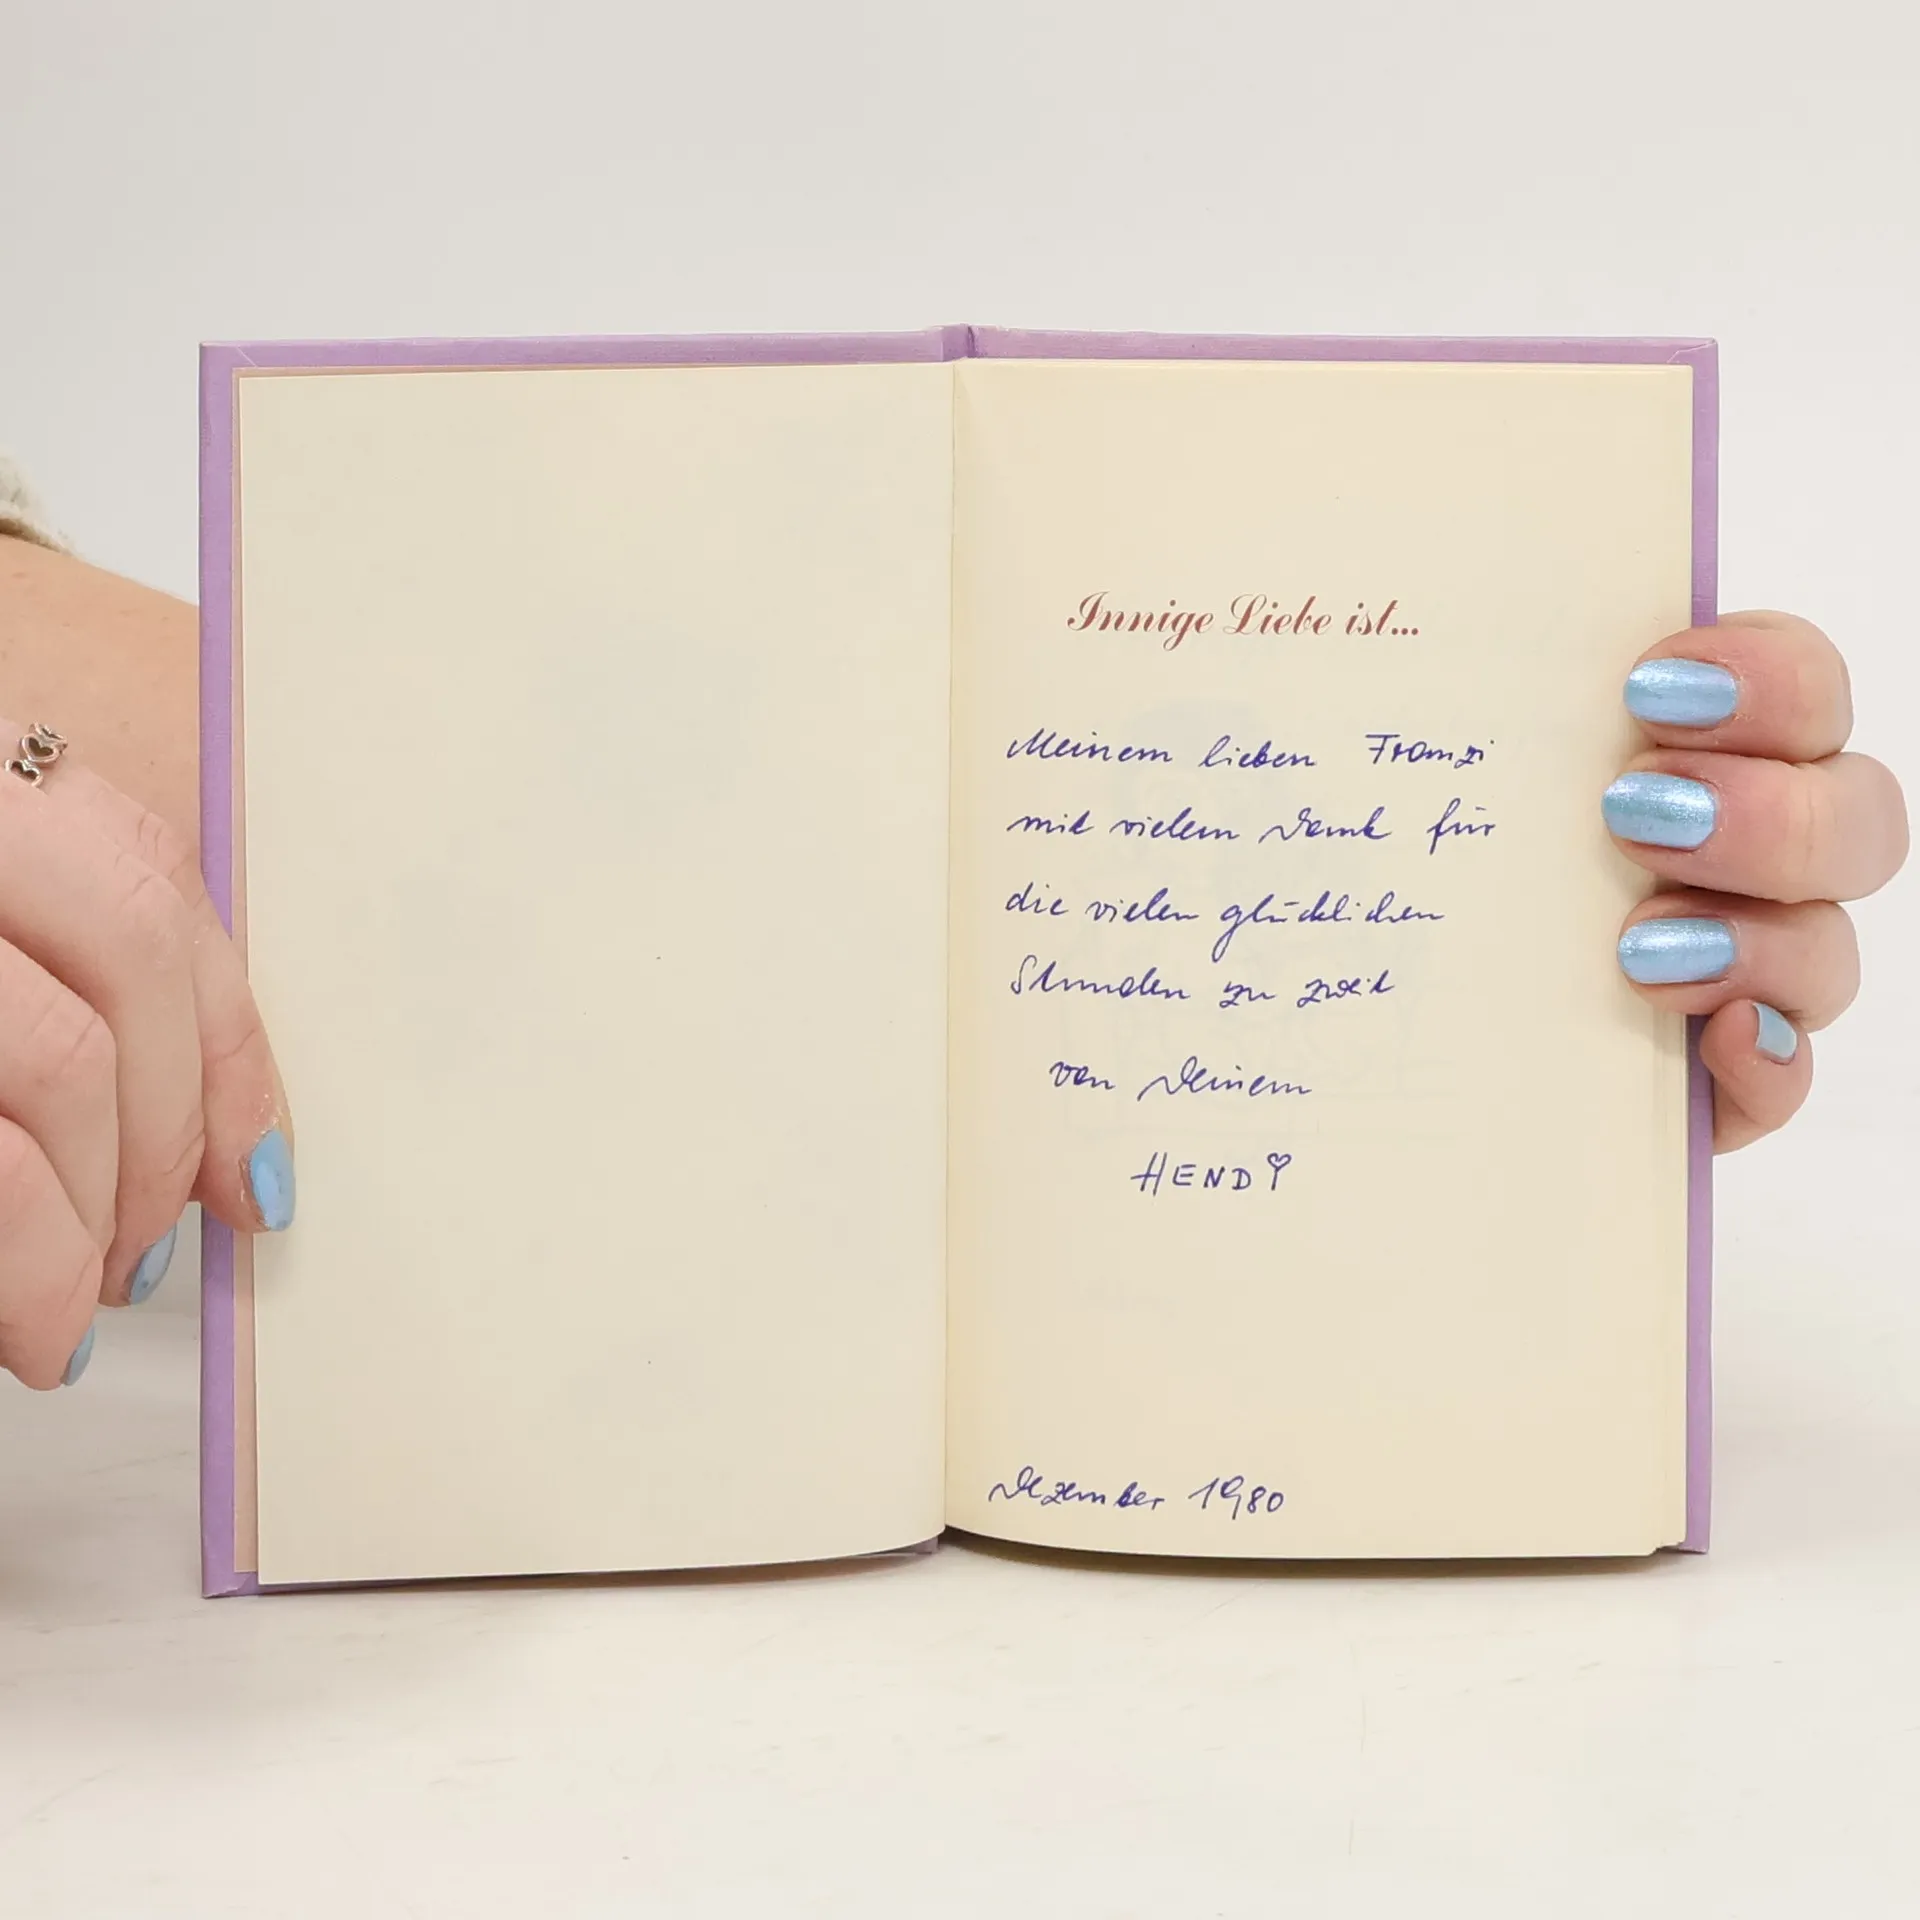 Innige Liebe ist...
Meinem lieben Franzi
mit vielem Dank für
die vielen glücklichen
Stunden zu zweit
von Deinem
HENDI
Dezember 1980